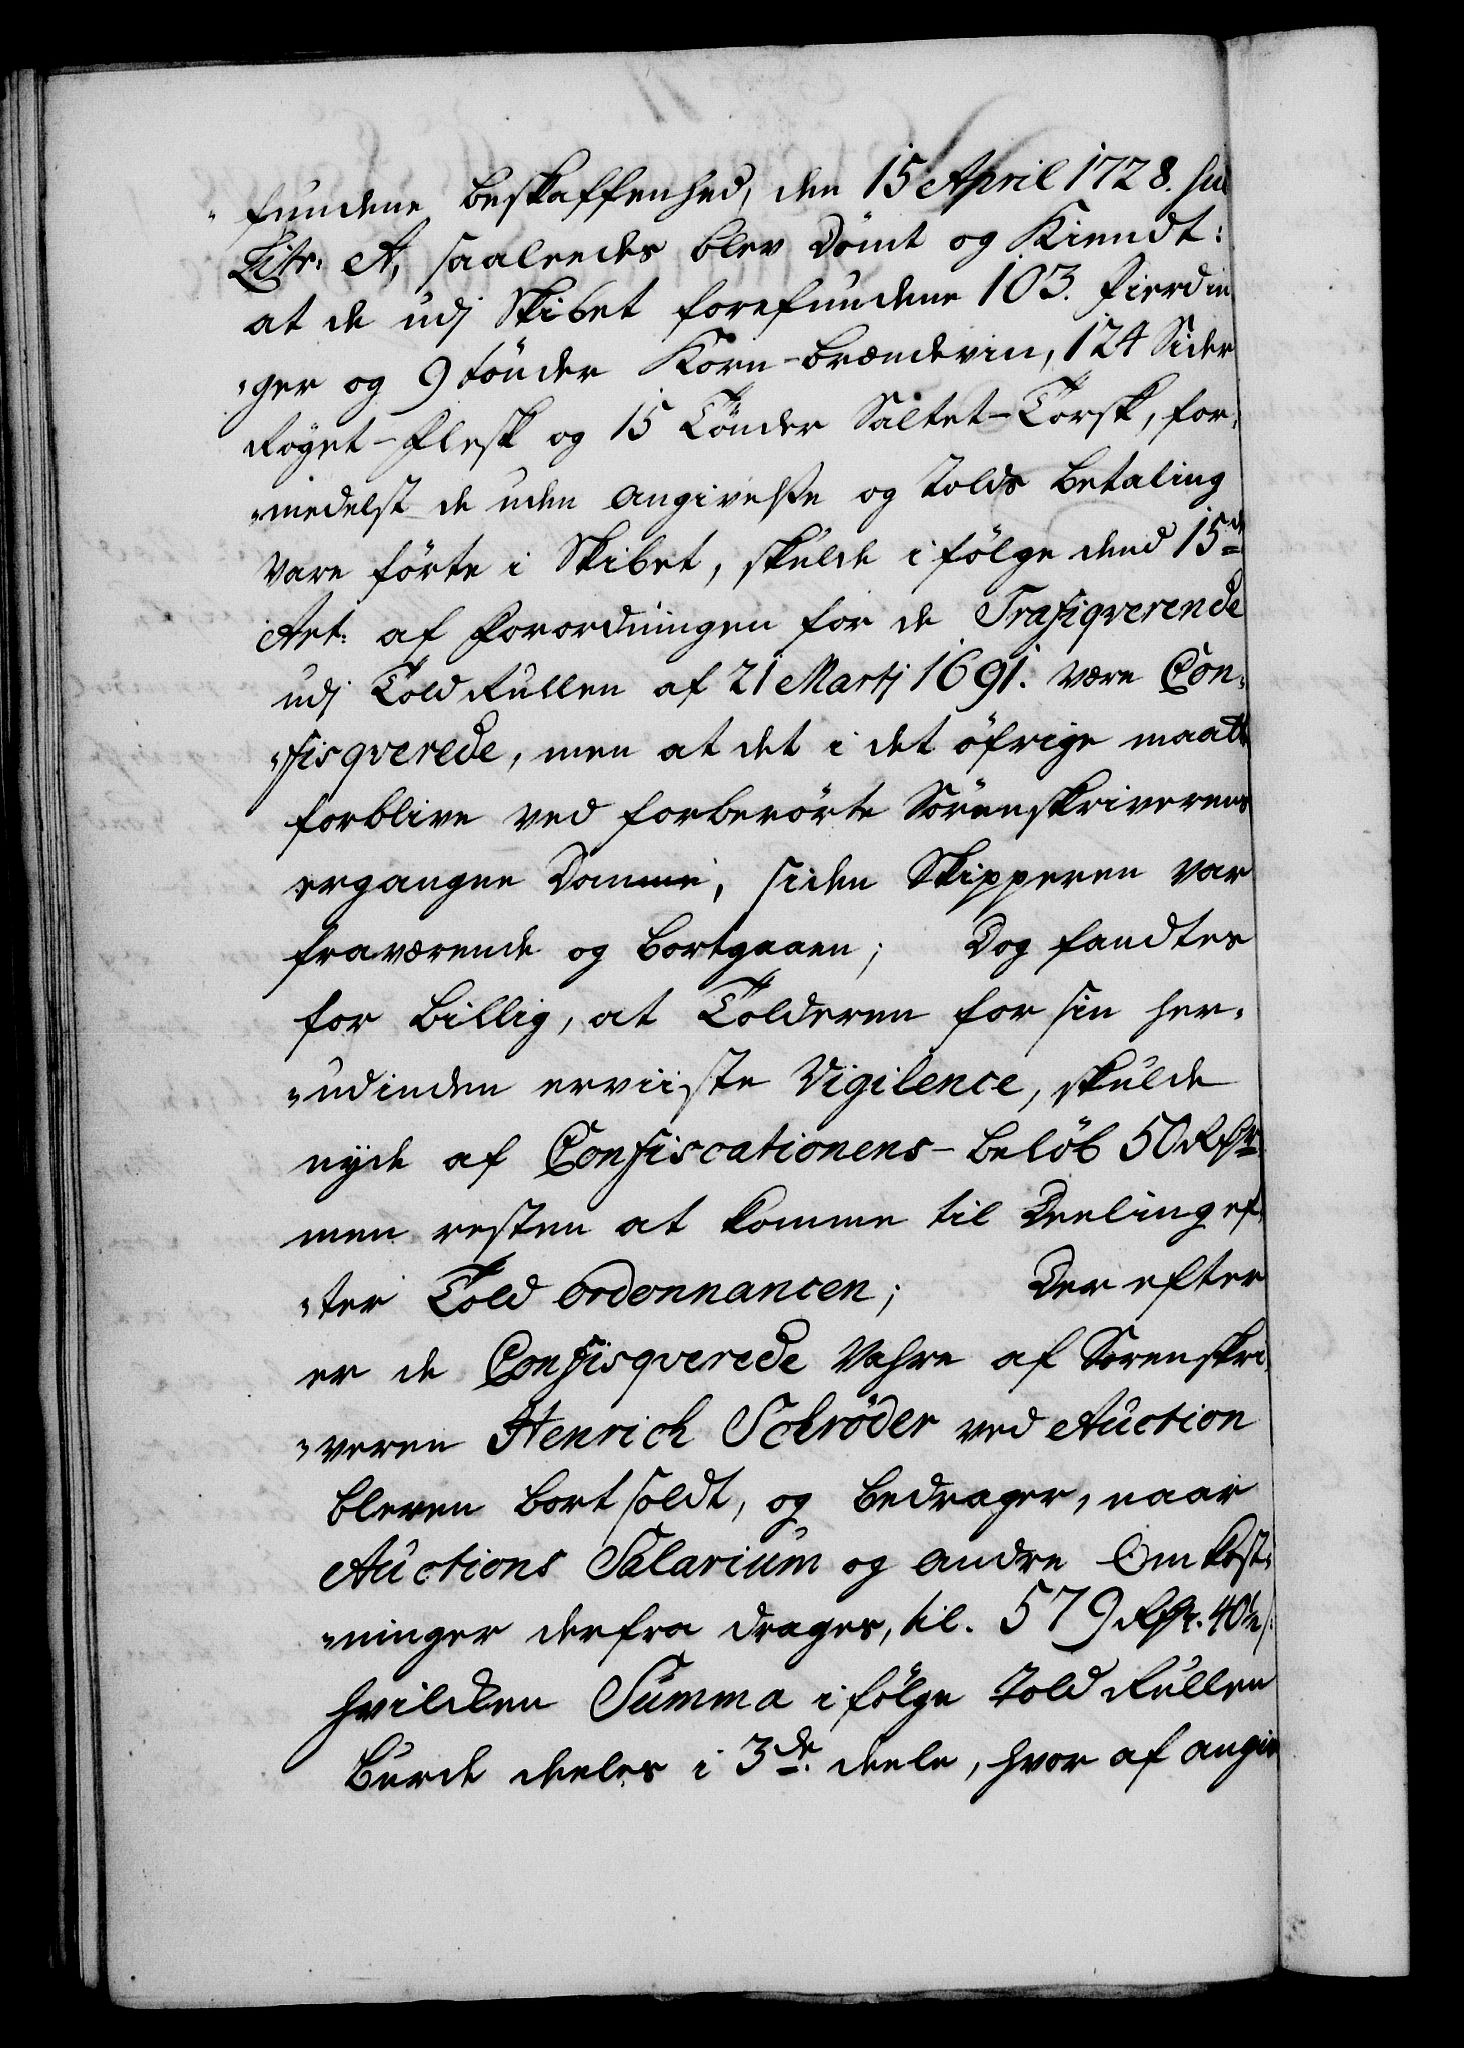 "fundene beskaffenhed, den 15 April 1728. sub
Litr: A, saaledes blev dømt og Kiendt:
at de udj Skibet forefundene 103. Fierdin
"ger og 9 tønder Korn-brændeviin, 124 Sider
Røget-Flesk og 15 Tønder Saltet-Torsk, for,
"medelst de uden angivelse og tolds betaling
vare førte i Skibet, skulde i følge dend 15de
Art: af Forordningen for de Trafiqverende
udj Told Rullen af 21 Martj 1691. være Con,
"fisqverede, men at det i det øfrige maatte
forblive ved forberørte Sorenskriverens
ergangne Domme, siden Skipperen var
fraværende og bortgaaen; Dog fandtes
for billig, at Tolderen for sin her,
"udinden erviiste Vigilence, skulde
nyde af Confiscationens-beløb 50 Rdr
men resten at komme til Deeling ef,
"ter Told ordonnancen; Der efter
er de Confisqverede Vahre af Sorenskri,
"veren Henrich Schrøder ved Auction
bleven bortsoldt, og bedrager, naar
Auctions Salarium og andre Omkost,
"ninger derfra drages, til. 579 Rdr. 40
hvilcken Summa i følge Told Rullen
burde deeles i 3de deele, hvor af angiv